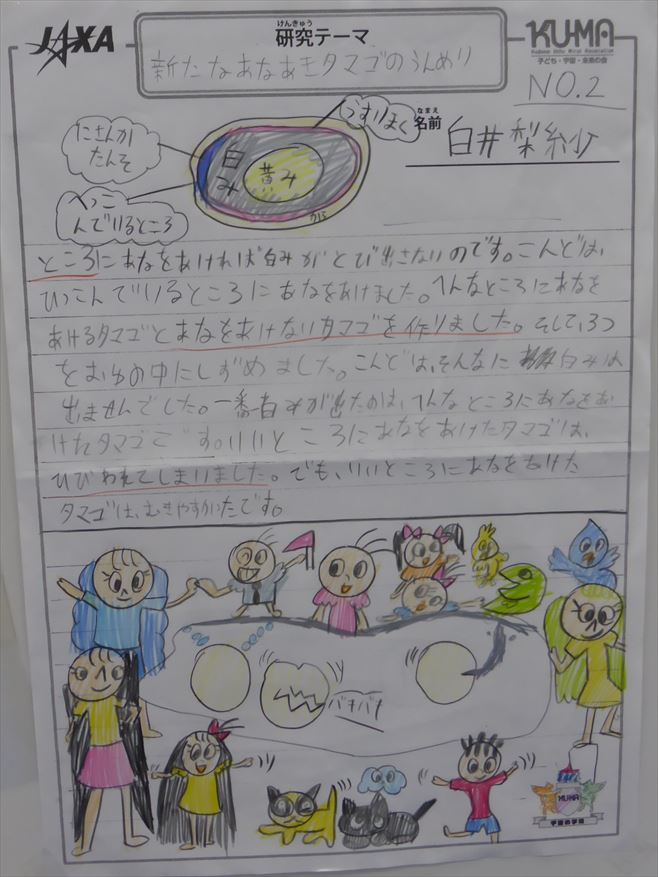 JAXA
けんきゅう
研究テーマ
新たなあなあきタマゴのうんめい
KU-MA
Kodomo Uchu Mirai Association
子ども・宇宙・未来の会
NO.2
なまえ
名前
白井 梨紗
うすいまく
にさんか
たんそ
へっこ
んでいるところ
白
み
黄み
から
ところにあなをあければ白みがとび出さないのです。こんどは、
ひっこんでいるところにあなをあけました。へんなところにあなを
あけるタマゴとあなをあけないタマゴを作りました。そして、3つ
をおゆの中にしずめました。こんどは、そんなに 白みは
出ませんでした。一番白みが出たのは、へんなところにあなをあ
けたタマゴです。いいところにあなをあけたタマゴは、
ひびわれてしまいました。でも、いいところにあなをあけた
タマゴは、むきやすかたです。
バキバキ
KUMA
宇宙の学校